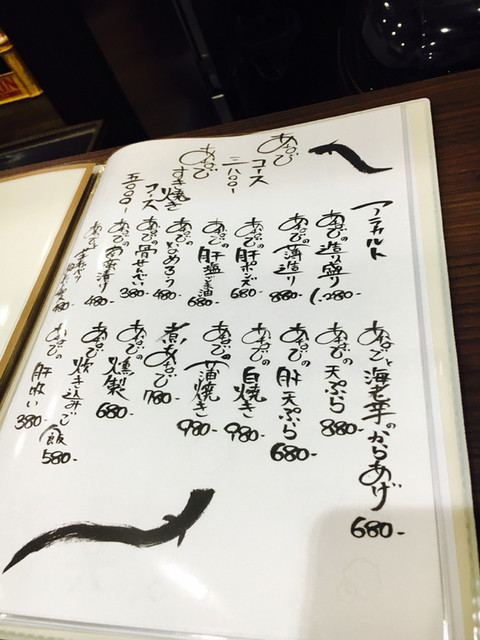 あなごコース
三八〇〇-
あなごすき焼きコース
五〇〇〇-
アラカルト
あなごの造り盛り 1,280-
あなごの薄造り 880-
あなごの肝ポン酢 680-
あなごの肝塩ごま油 680-
あなごのとめろう 480-
あなごの骨せんべい 380-
あなごの南蛮漬け 480-
あなごの
あなごと海老芋のからあげ 680-
あなごの天ぷら 880-
あなごの肝天ぷら 680-
あなごの白焼き 980-
あなごの蒲焼き 980-
煮あなご 780-
あなごの燻製 680-
あなごの炊き込みご飯 580-
あなごの肝吸い 380-